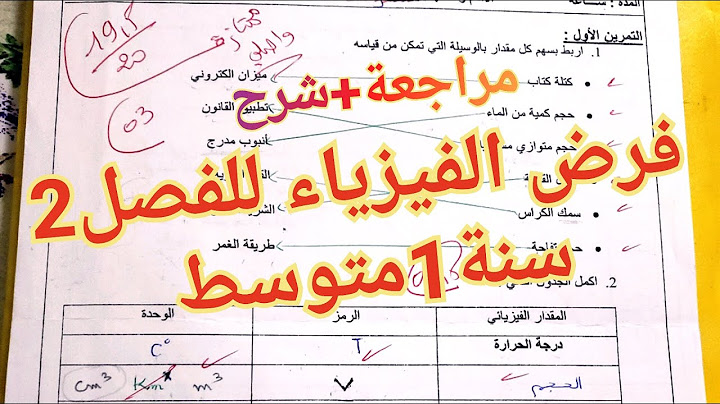 المدة : ساعة
19,5
20
ممتازة
واصلي
03
التمرين الأول :
1. اربط بسهم كل مقدار بالوسيلة التي تمكن من قياسه
كتلة كتاب
ميزان الكتروني
حجم كمية من الماء
تطبيق القانون
حجم متوازي
أنبوب مدرج
سمك الكراس
طريقة الغمر
مراجعة+شرح
فرض الفيزياء للفصل2
سنة1متوسط
2. اكمل الجدول
المقدار الفيزيائي
الرمز
الوحدة
درجة الحرارة
T
C°
الحجم
V
m³
Km
cm³